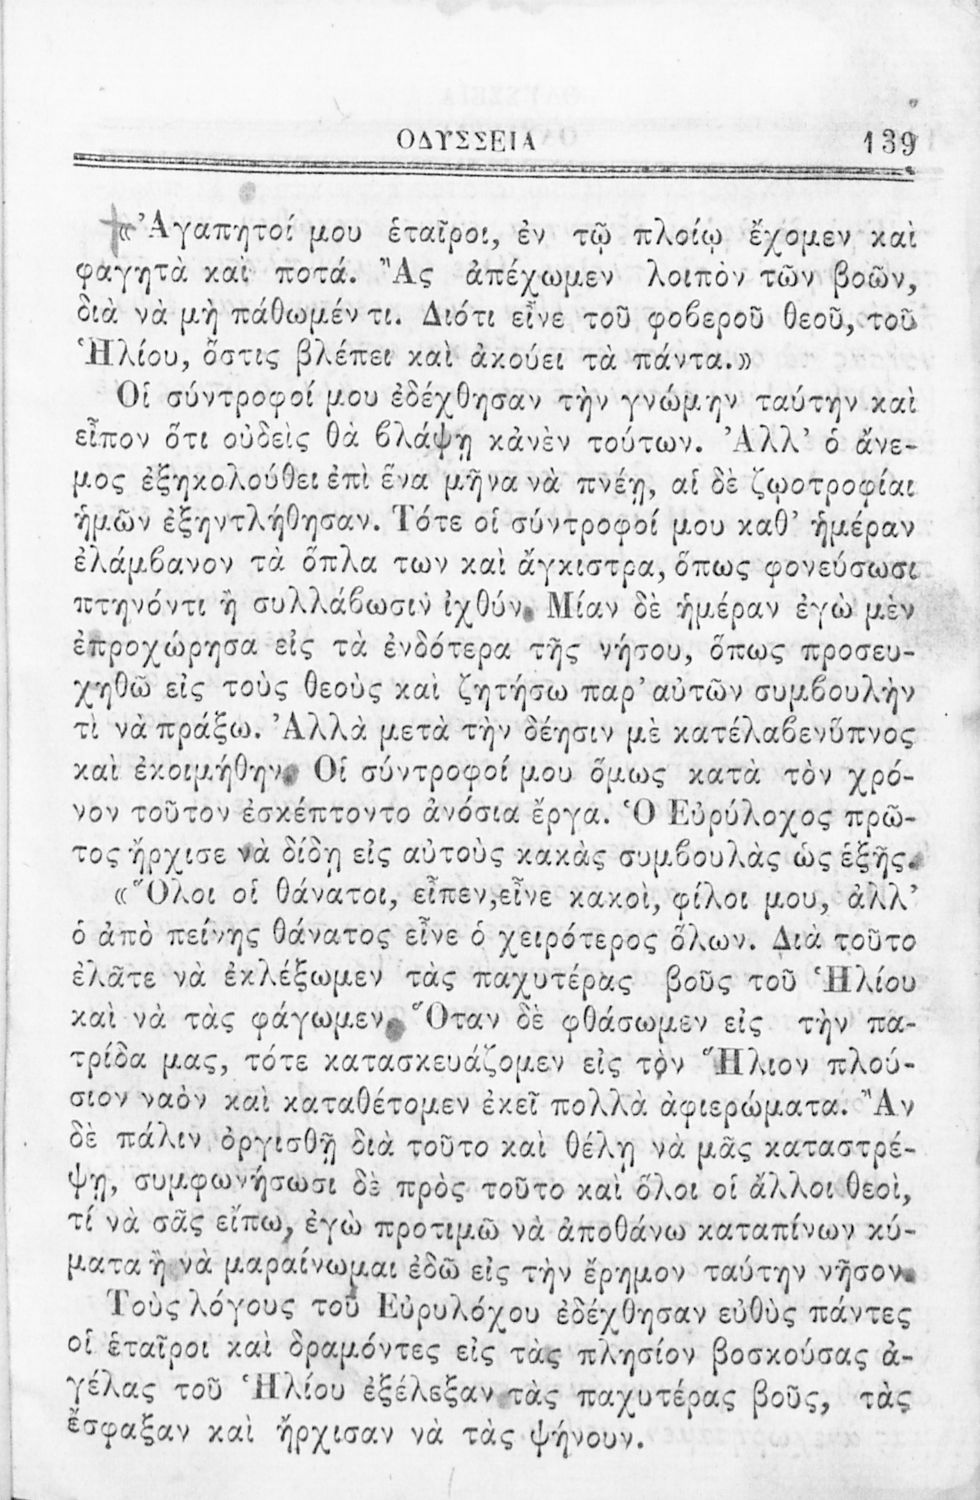 ΟΔΥΣΣΕΙΑ 139
«Ἀγαπητοί μου ἑταῖροι, ἐν τῷ πλοίῳ ἔχομεν καὶ
φαγητὰ καὶ ποτά. Ἂς ἀπέχωμεν λοιπὸν τῶν βοῶν,
διὰ νὰ μὴ πάθωμέν τι. Διότι εἶνε τοῦ φοβεροῦ θεοῦ, τοῦ
Ἡλίου, ὅστις βλέπει καὶ ἀκούει τὰ πάντα.»
Οἱ σύντροφοί μου ἐδέχθησαν τὴν γνώμην ταύτην καὶ
εἶπον ὅτι οὐδεὶς θὰ βλάψῃ κἀνὲν τούτων. Ἀλλ’ ὁ ἄνε-
μος ἐξηκολούθει ἐπὶ ἕνα μῆνα νὰ πνέῃ, αἱ δὲ ζωοτροφίαι
ἡμῶν ἐξηντλήθησαν. Τότε οἱ σύντροφοί μου καθ’ ἡμέραν
ἐλάμβανον τὰ ὅπλα των καὶ ἄγκιστρα, ὅπως φονεύσωσι
πτηνόντι ἢ συλλάβωσιν ἰχθύν. Μίαν δὲ ἡμέραν ἐγὼ μὲν
ἐπροχώρησα εἰς τὰ ἐνδότερα τῆς νήσου, ὅπως προσευ-
χηθῶ εἰς τοὺς θεοὺς καὶ ζητήσω παρ’ αὐτῶν συμβουλὴν
τὶ νὰ πράξω. Ἀλλὰ μετὰ τὴν δέησιν μὲ κατέλαβενὕπνος
καὶ ἐκοιμήθην. Οἱ σύντροφοί μου ὅμως κατὰ τὸν χρό-
νον τοῦτον ἐσκέπτοντο ἀνόσια ἔργα. Ὁ Εὐρύλοχος πρῶ-
τος ἤρχισε νὰ δίδῃ εἰς αὐτοὺς κακὰς συμβουλὰς ὡς ἑξῆς.
«Ὅλοι οἱ θάνατοι, εἶπεν, εἶνε κακοὶ, φίλοι μου, ἀλλ’
ὁ ἀπὸ πείνης θάνατος εἶνε ὁ χειρότερος ὅλων. Διὰ τοῦτο
ἐλᾶτε νὰ ἐκλέξωμεν τὰς παχυτέρας βοῦς τοῦ Ἡλίου
καὶ νὰ τὰς φάγωμεν. Ὅταν δὲ φθάσωμεν εἰς τὴν πα-
τρίδα μας, τότε κατασκευάζομεν εἰς τὸν Ἥλιον πλού-
σιον ναὸν καὶ καταθέτομεν ἐκεῖ πολλὰ ἀφιερώματα. Ἂν
δὲ πάλιν ὀργισθῇ διὰ τοῦτο καὶ θέλῃ νὰ μᾶς καταστρέ-
ψῃ, συμφωνήσωσι δὲ πρὸς τοῦτο καὶ ὅλοι οἱ ἄλλοι θεοὶ,
τί νὰ σᾶς εἴπω, ἐγὼ προτιμῶ νὰ ἀποθάνω καταπίνων κύ-
ματα ἢ νὰ μαραίνωμαι ἐδῶ εἰς τὴν ἔρημον ταύτην νῆσον.
Τοὺς λόγους τοῦ Εὐρυλόχου ἐδέχθησαν εὐθὺς πάντες
οἱ ἑταῖροι καὶ δραμόντες εἰς τὰς πλησίον βοσκούσας ἀ-
γέλας τοῦ Ἡλίου ἐξέλεξαν τὰς παχυτέρας βοῦς, τὰς
ἔσφαξαν καὶ ἤρχισαν νὰ τὰς ψήνουν.